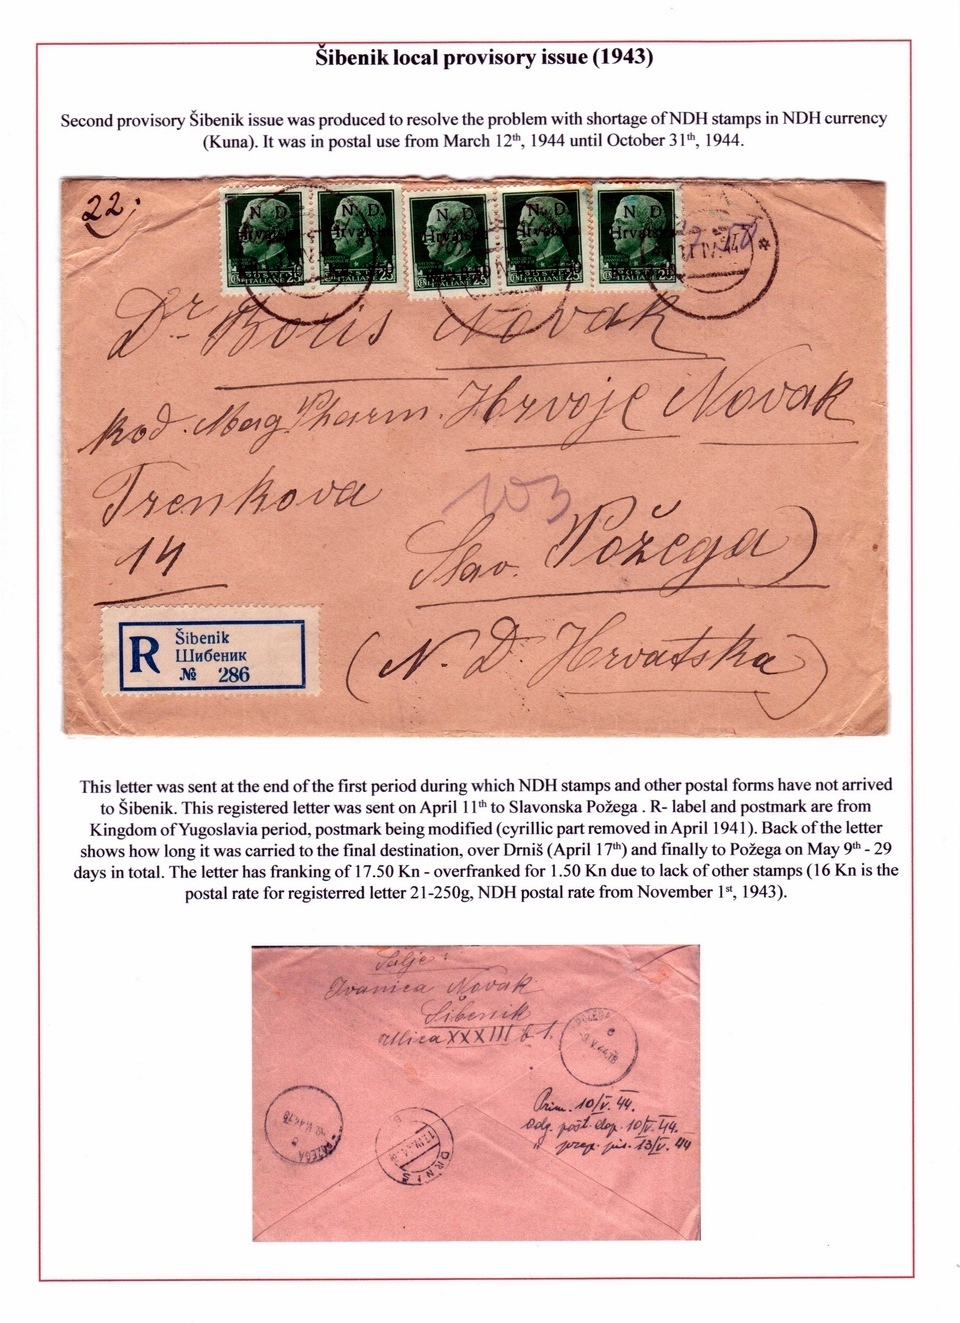 Šibenik local provisory issue (1943)
Second provisory Šibenik issue was produced to resolve the problem with shortage of NDH stamps in NDH currency
(Kuna). It was in postal use from March 12th, 1944 until October 31th, 1944.
22;
N. D. N. D. N. D. N. D. N. D.
Hrvatska Hrvatska Hrvatska Hrvatska
ITALIANE ITALIANE ITALIANE ITALIANE ITALIANE
Dr. Boris Novak
kod. Mag. Pharm. Hrvoje Novak
Trenkova
14
103
Slav. Požega)
(N. D. Hrvatska)
R
Šibenik
Шибеник
№ 286
This letter was sent at the end of the first period during which NDH stamps and other postal forms have not arrived
to Šibenik. This registered letter was sent on April 11th to Slavonska Požega . R- label and postmark are from
Kingdom of Yugoslavia period, postmark being modified (cyrillic part removed in April 1941). Back of the letter
shows how long it was carried to the final destination, over Drniš (April 17th) and finally to Požega on May 9th - 29
days in total. The letter has franking of 17.50 Kn - overfranked for 1.50 Kn due to lack of other stamps (16 Kn is the
postal rate for registerred letter 21-250g, NDH postal rate from November 1st, 1943).
Šalje:
Ivanica Novak
Šibenik
Ulica XXXIII b. 1.
POŽEGA
Prim. 10/V. 44.
odg. pošt. dop. 10/V. 44.
" 13/V. 44
POŽEGA
DRNIŠ